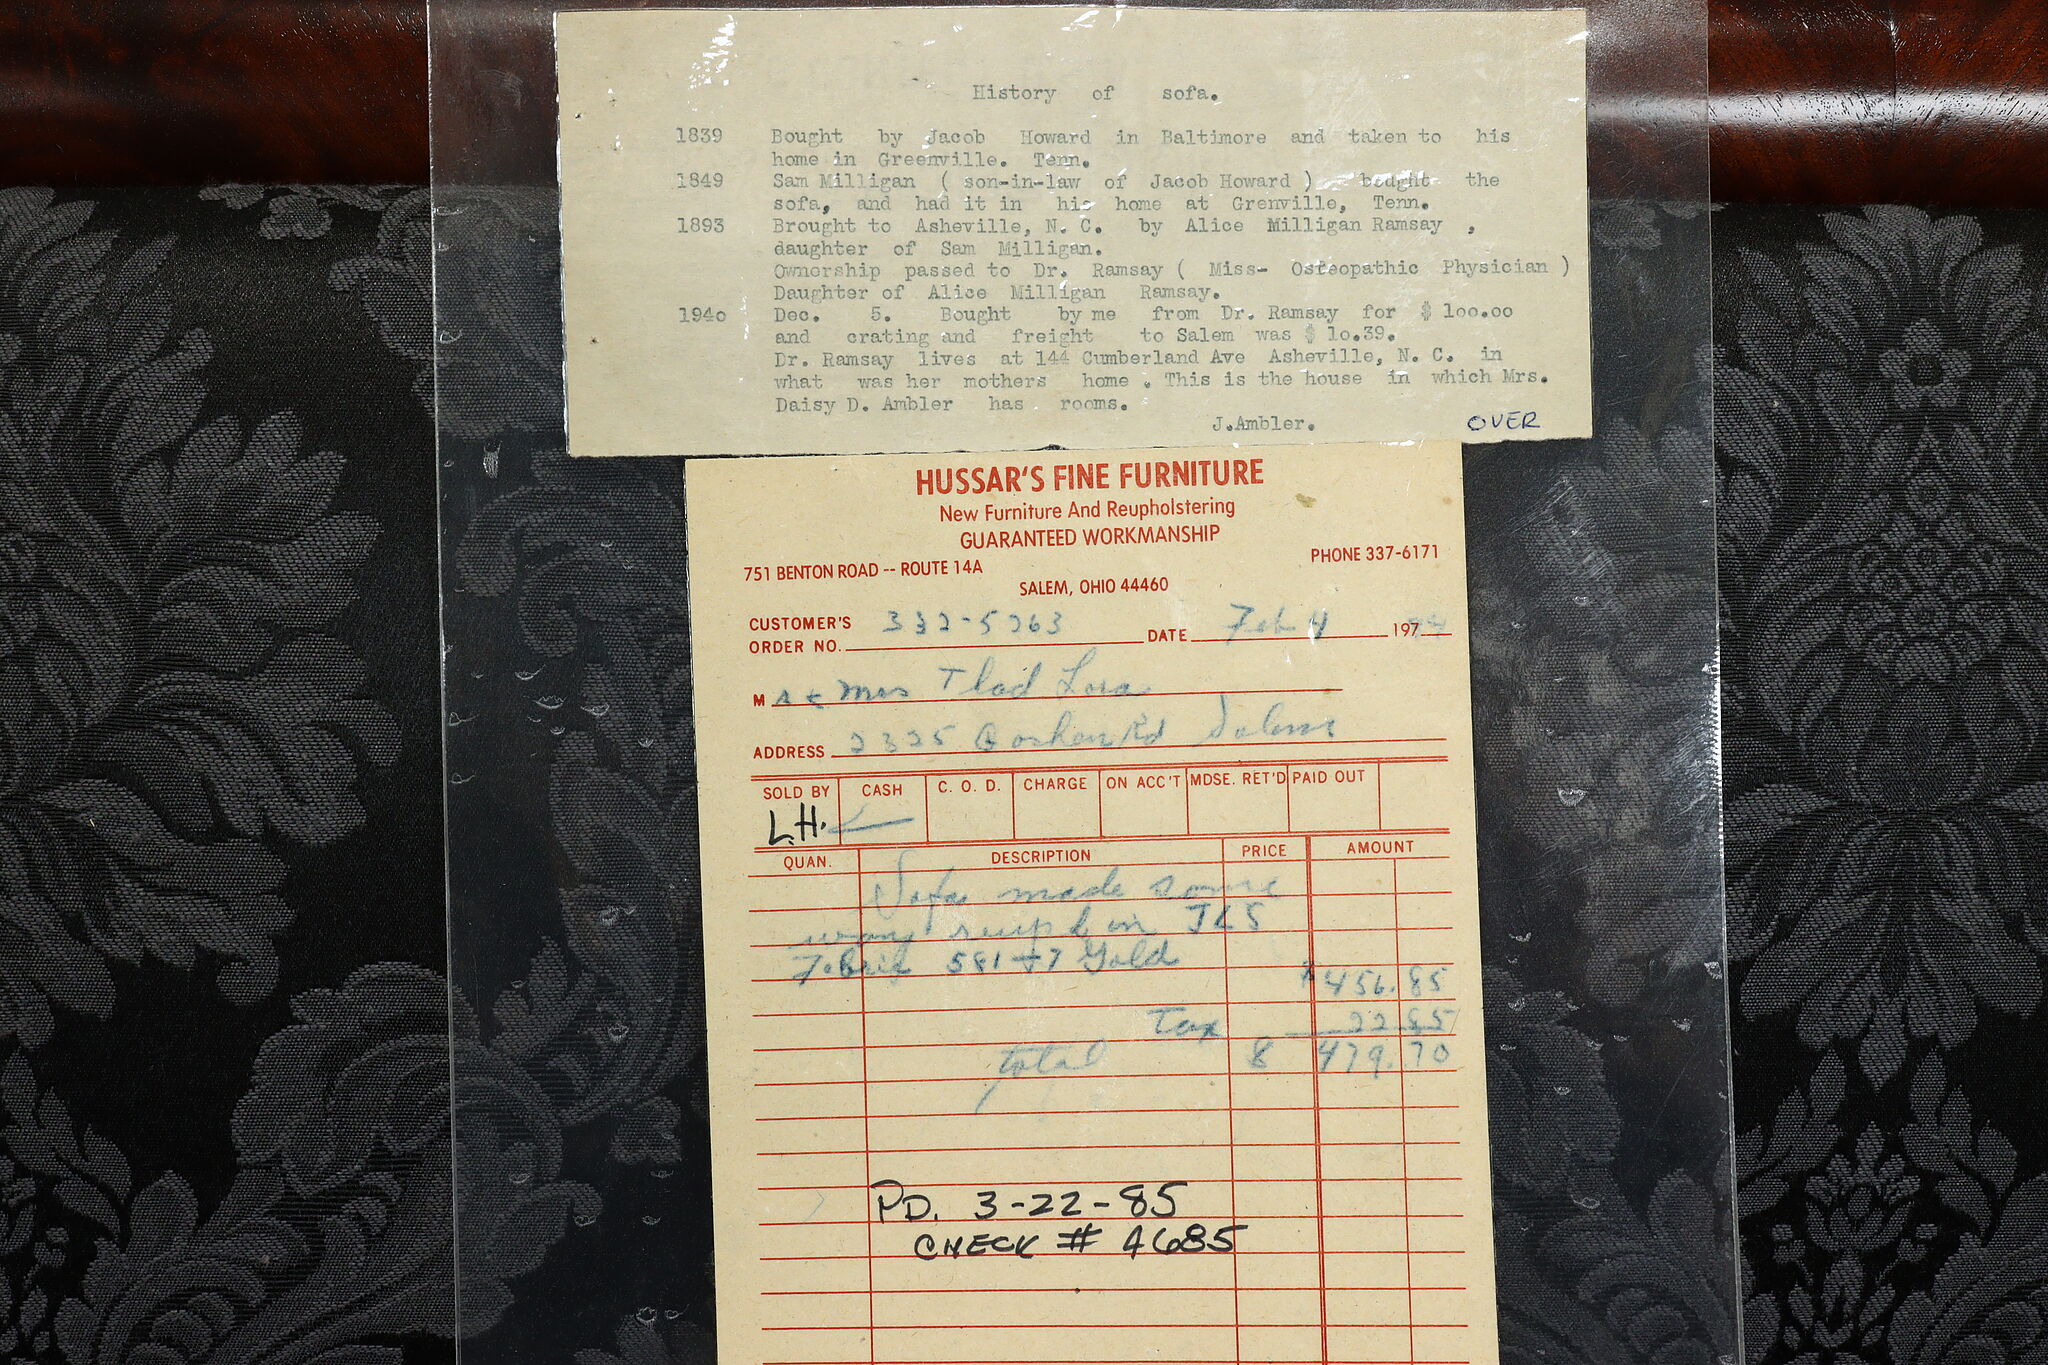 History of sofa.
1839 Bought by Jacob Howard in Baltimore and taken to his
home in Greenville. Tenn.
1849 Sam Milligan ( son-in-law of Jacob Howard ) bought the
sofa, and had it in his home at Grenville, Tenn.
1893 Brought to Asheville, N. C. by Alice Milligan Ramsay ,
daughter of Sam Milligan.
Ownership passed to Dr. Ramsay ( Miss- Osteopathic Physician )
Daughter of Alice Milligan Ramsay.
1940 Dec. 5. Bought by me from Dr. Ramsay for $ 100.00
and crating and freight to Salem was $ 10.39.
Dr. Ramsay lives at 144 Cumberland Ave Asheville, N. C. in
what was her mothers home . This is the house in which Mrs.
Daisy D. Ambler has rooms.
J.Ambler.
OVER
HUSSAR'S FINE FURNITURE
New Furniture And Reupholstering
GUARANTEED WORKMANSHIP
751 BENTON ROAD -- ROUTE 14A PHONE 337-6171
SALEM, OHIO 44460
CUSTOMER'S ORDER NO. 332-5263 DATE Feb 4 197
M r & Mrs Thad Lora
ADDRESS 2325 Goshen Rd Salem
SOLD BY CASH C. O. D. CHARGE ON ACC'T MDSE. RET'D PAID OUT
L.H.
QUAN. DESCRIPTION PRICE AMOUNT
Sofa made same
way reuph in JLS
Fabric 581 +7 Gold
$456.85
Tax 22 85
total $ 479.70
PD. 3-22-85
CHECK # 4685